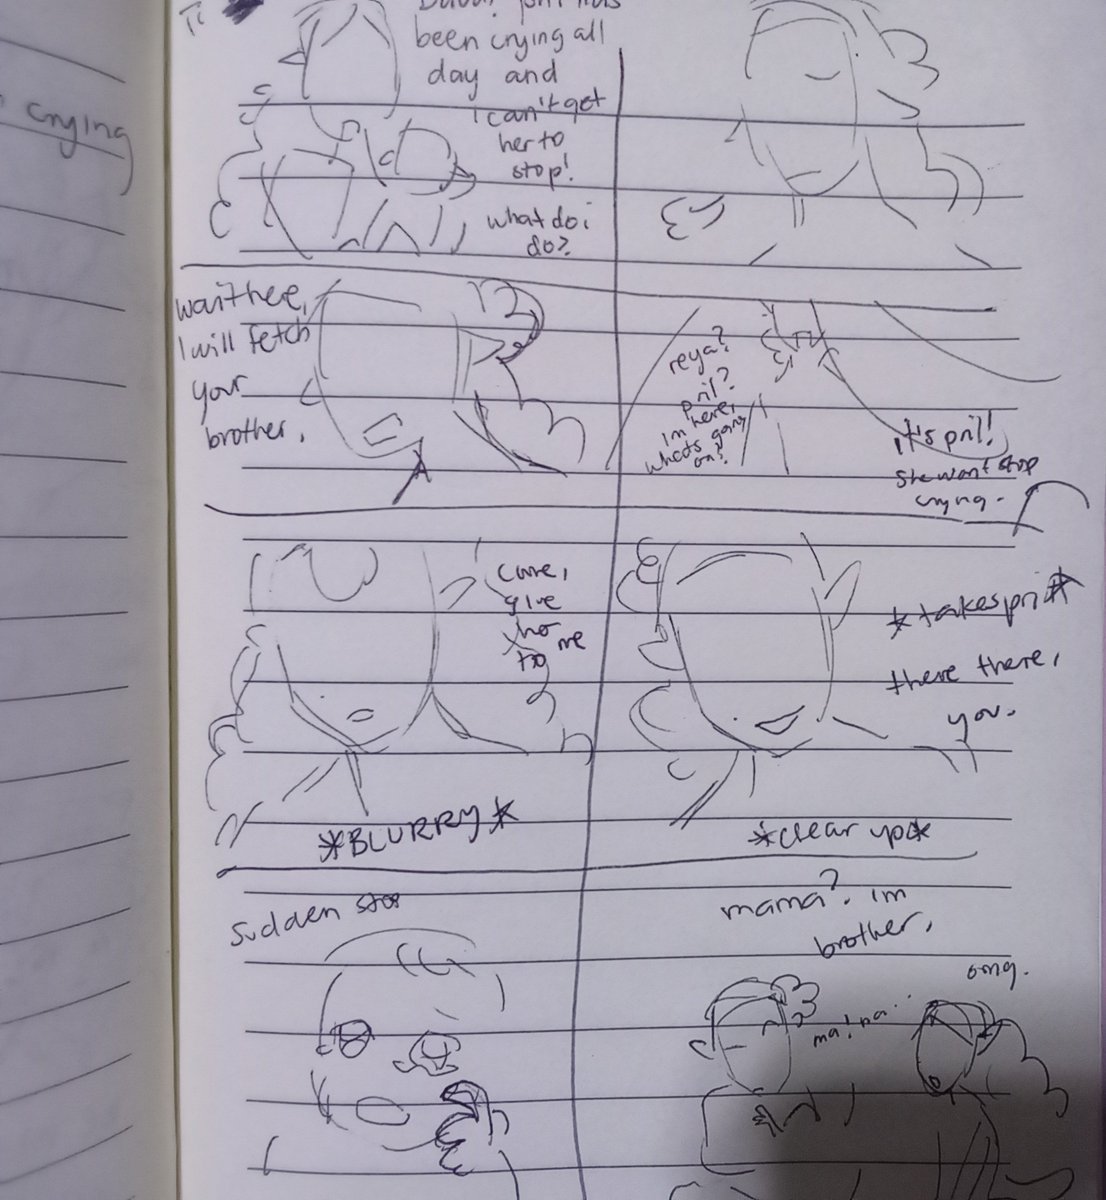 crying
been crying all
day and
i can't get
her to
stop!
what do i
do?
wait here,
I will fetch
your
brother.
reya?
pril?
im here,
whats going
on?
it's pril!
she wont stop
crying.
come,
give
her
to me
*takes pril*
there there,
you.
*BLURRY*
*clear up*
sudden stop
mama? im
brother.
ma! na..
omg.